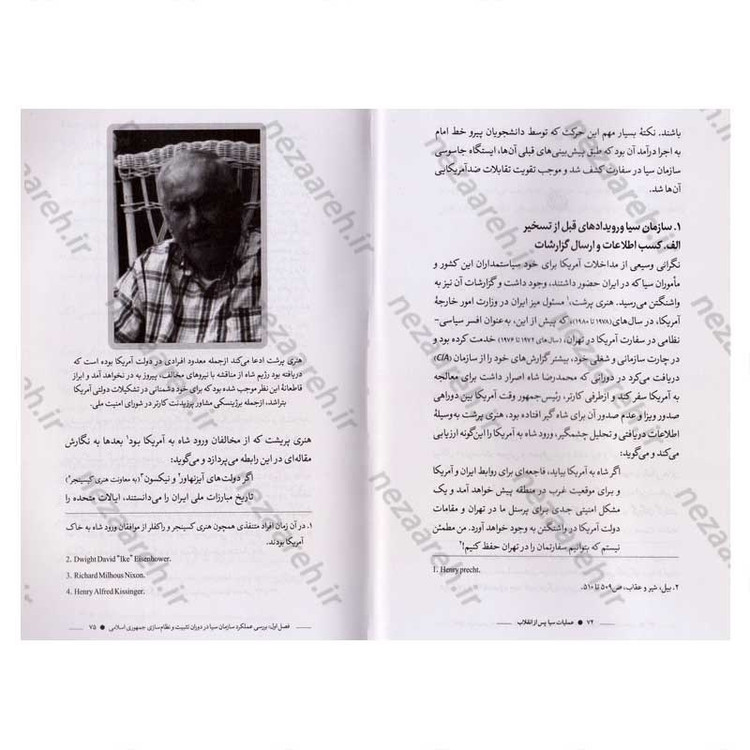 باشند. نکتهٔ بسیار مهم این حرکت که توسط دانشجویان پیرو خط امام
به اجرا درآمد آن بود که طبق پیش‌بینی‌های قبلی آن‌ها، ایستگاه جاسوسی
سازمان سیا در سفارت کشف شد و موجب تقویت تقابلات ضدآمریکایی
آن‌ها شد.
۱. سازمان سیا و رویدادهای قبل از تسخیر
الف. کسب اطلاعات و ارسال گزارشات
نگرانی وسیعی از مداخلات آمریکا برای خود سیاستمداران این کشور و
مأموران سیا که در ایران حضور داشتند، وجود داشت و گزارشات آن نیز به
واشنگتن می‌رسید. هنری پرشت،۱ مسئول میز ایران در وزارت امور خارجهٔ
آمریکا، در سال‌های (۱۹۷۸ تا ۱۹۸۰)، که پیش از این، به‌عنوان افسر سیاسی-
نظامی در سفارت آمریکا در تهران، (سال‌های ۱۹۷۲ تا ۱۹۷۶) خدمت کرده بود و
در چارت سازمانی و شغلی خود، بیشتر گزارش‌های خود را از سازمان (CIA)
دریافت می‌کرد در دورانی که محمدرضا شاه اصرار داشت برای معالجه
به آمریکا سفر کند و ازطرفی کارتر، رئیس‌جمهور وقت آمریکا بین دوراهی
صدور ویزا و عدم صدور آن برای شاه گیر افتاده بود، هنری پرشت به‌وسیلهٔ
اطلاعات دریافتی و تحلیل چشمگیر، ورود شاه به آمریکا را این‌گونه ارزیابی
می‌کند و می‌گوید:
اگر شاه به آمریکا بیاید، فاجعه‌ای برای روابط ایران و آمریکا
و برای موقعیت غرب در منطقه پیش خواهد آمد و یک
مشکل امنیتی جدی برای پرسنل ما در تهران و مقامات
دولت آمریکا در واشنگتن به وجود خواهد آورد. من مطمئن
نیستم که بتوانیم سفارتمان را در تهران حفظ کنیم!۲
1. Henry precht.
۲. بیل، شیر و عقاب، ص۵۰۹ تا ۵۱۰.
۷۴ ● عملیات سیا پس از انقلاب
هنری پرشت ادعا می‌کند ازجمله معدود افرادی در دولت آمریکا بوده است که
دریافته بود رژیم شاه از مناقشه با نیروهای مخالف، پیروز به در نخواهد آمد و ابراز
قاطعانهٔ این نظر موجب شده بود که برای خود دشمنانی در تشکیلات دولتی آمریکا
بتراشد، ازجمله برژینسکی مشاور پرزیدنت کارتر در شورای امنیت ملی.
هنری پریشت که از مخالفان ورود شاه به آمریکا بود۱ بعدها به نگارش
مقاله‌ای در این رابطه می‌پردازد و می‌گوید:
اگر دولت‌های آیزنهاور۲ و نیکسون۳ (به معاونت هنری کسینجر۴)
تاریخ مبارزات ملی ایران را می‌دانستند، ایالات متحده را
۱. در آن زمان افراد متنفذی همچون هنری کسینجر و راکفلر از موافقان ورود شاه به خاک
آمریکا بودند.
2. Dwight David "Ike" Eisenhower.
3. Richard Milhous Nixon.
4. Henry Alfred Kissinger.
فصل اول: بررسی عملکرد سازمان سیا در دوران تثبیت و نظام سازی جمهوری اسلامی ● ۷۵
nezaareh.ir
nezaareh.ir
nezaareh.ir
nezaareh.ir
nezaareh.ir
nezaareh.ir